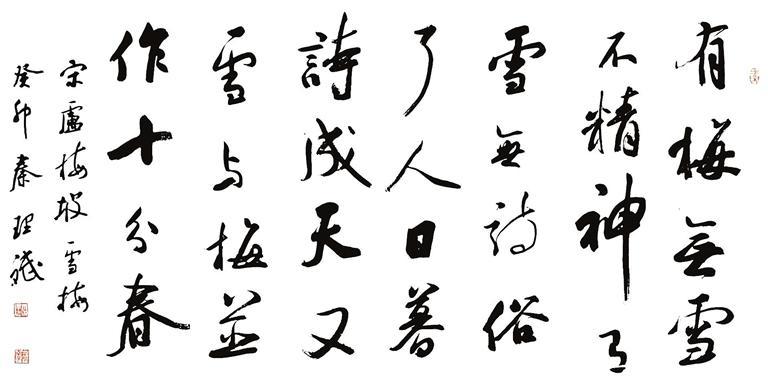 有梅無雪
不精神有
雪無詩俗
了人日暮
詩成天又
雪与梅並
作十分春
宋盧梅坡雪梅
癸卯秦理